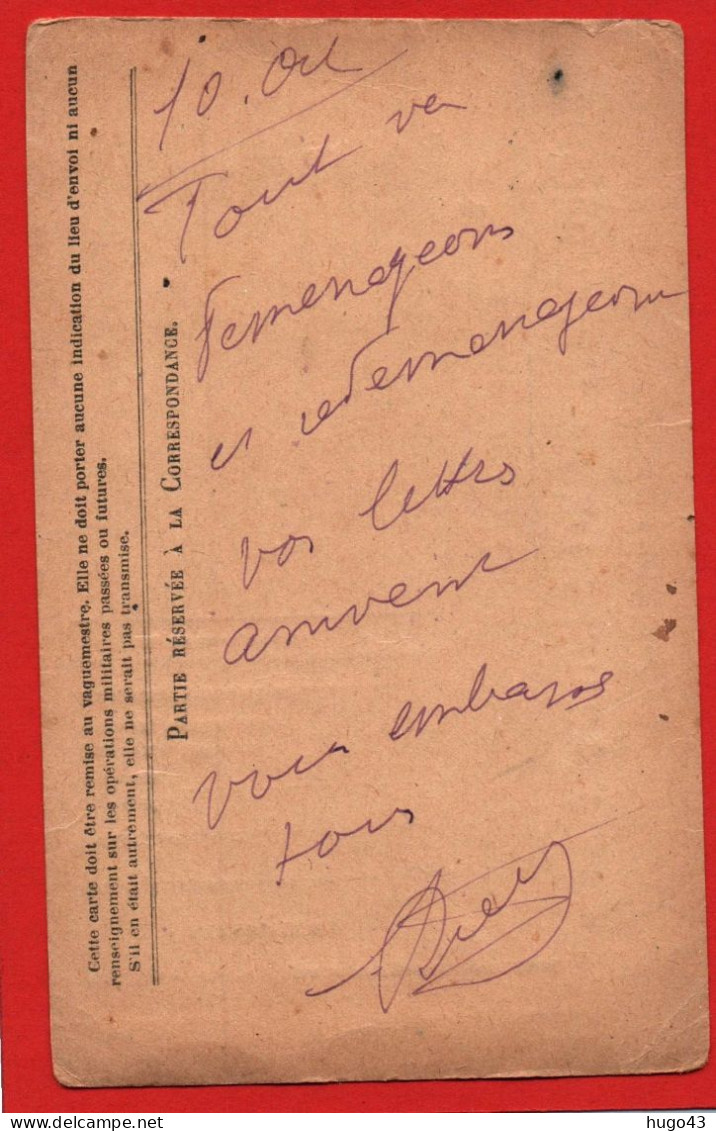 Cette carte doit être remise au vaguemestre. Elle ne doit porter aucune indication du lieu d'envoi ni aucun
renseignement sur les opérations militaires passées ou futures.
S'il en était autrement, elle ne serait pas transmise.
PARTIE RÉSERVÉE À LA CORRESPONDANCE.
10. Oct
Tout va
Demenageons
et redemenageons
vos lettres
arrivent
vous embrasse
tous
hugo43